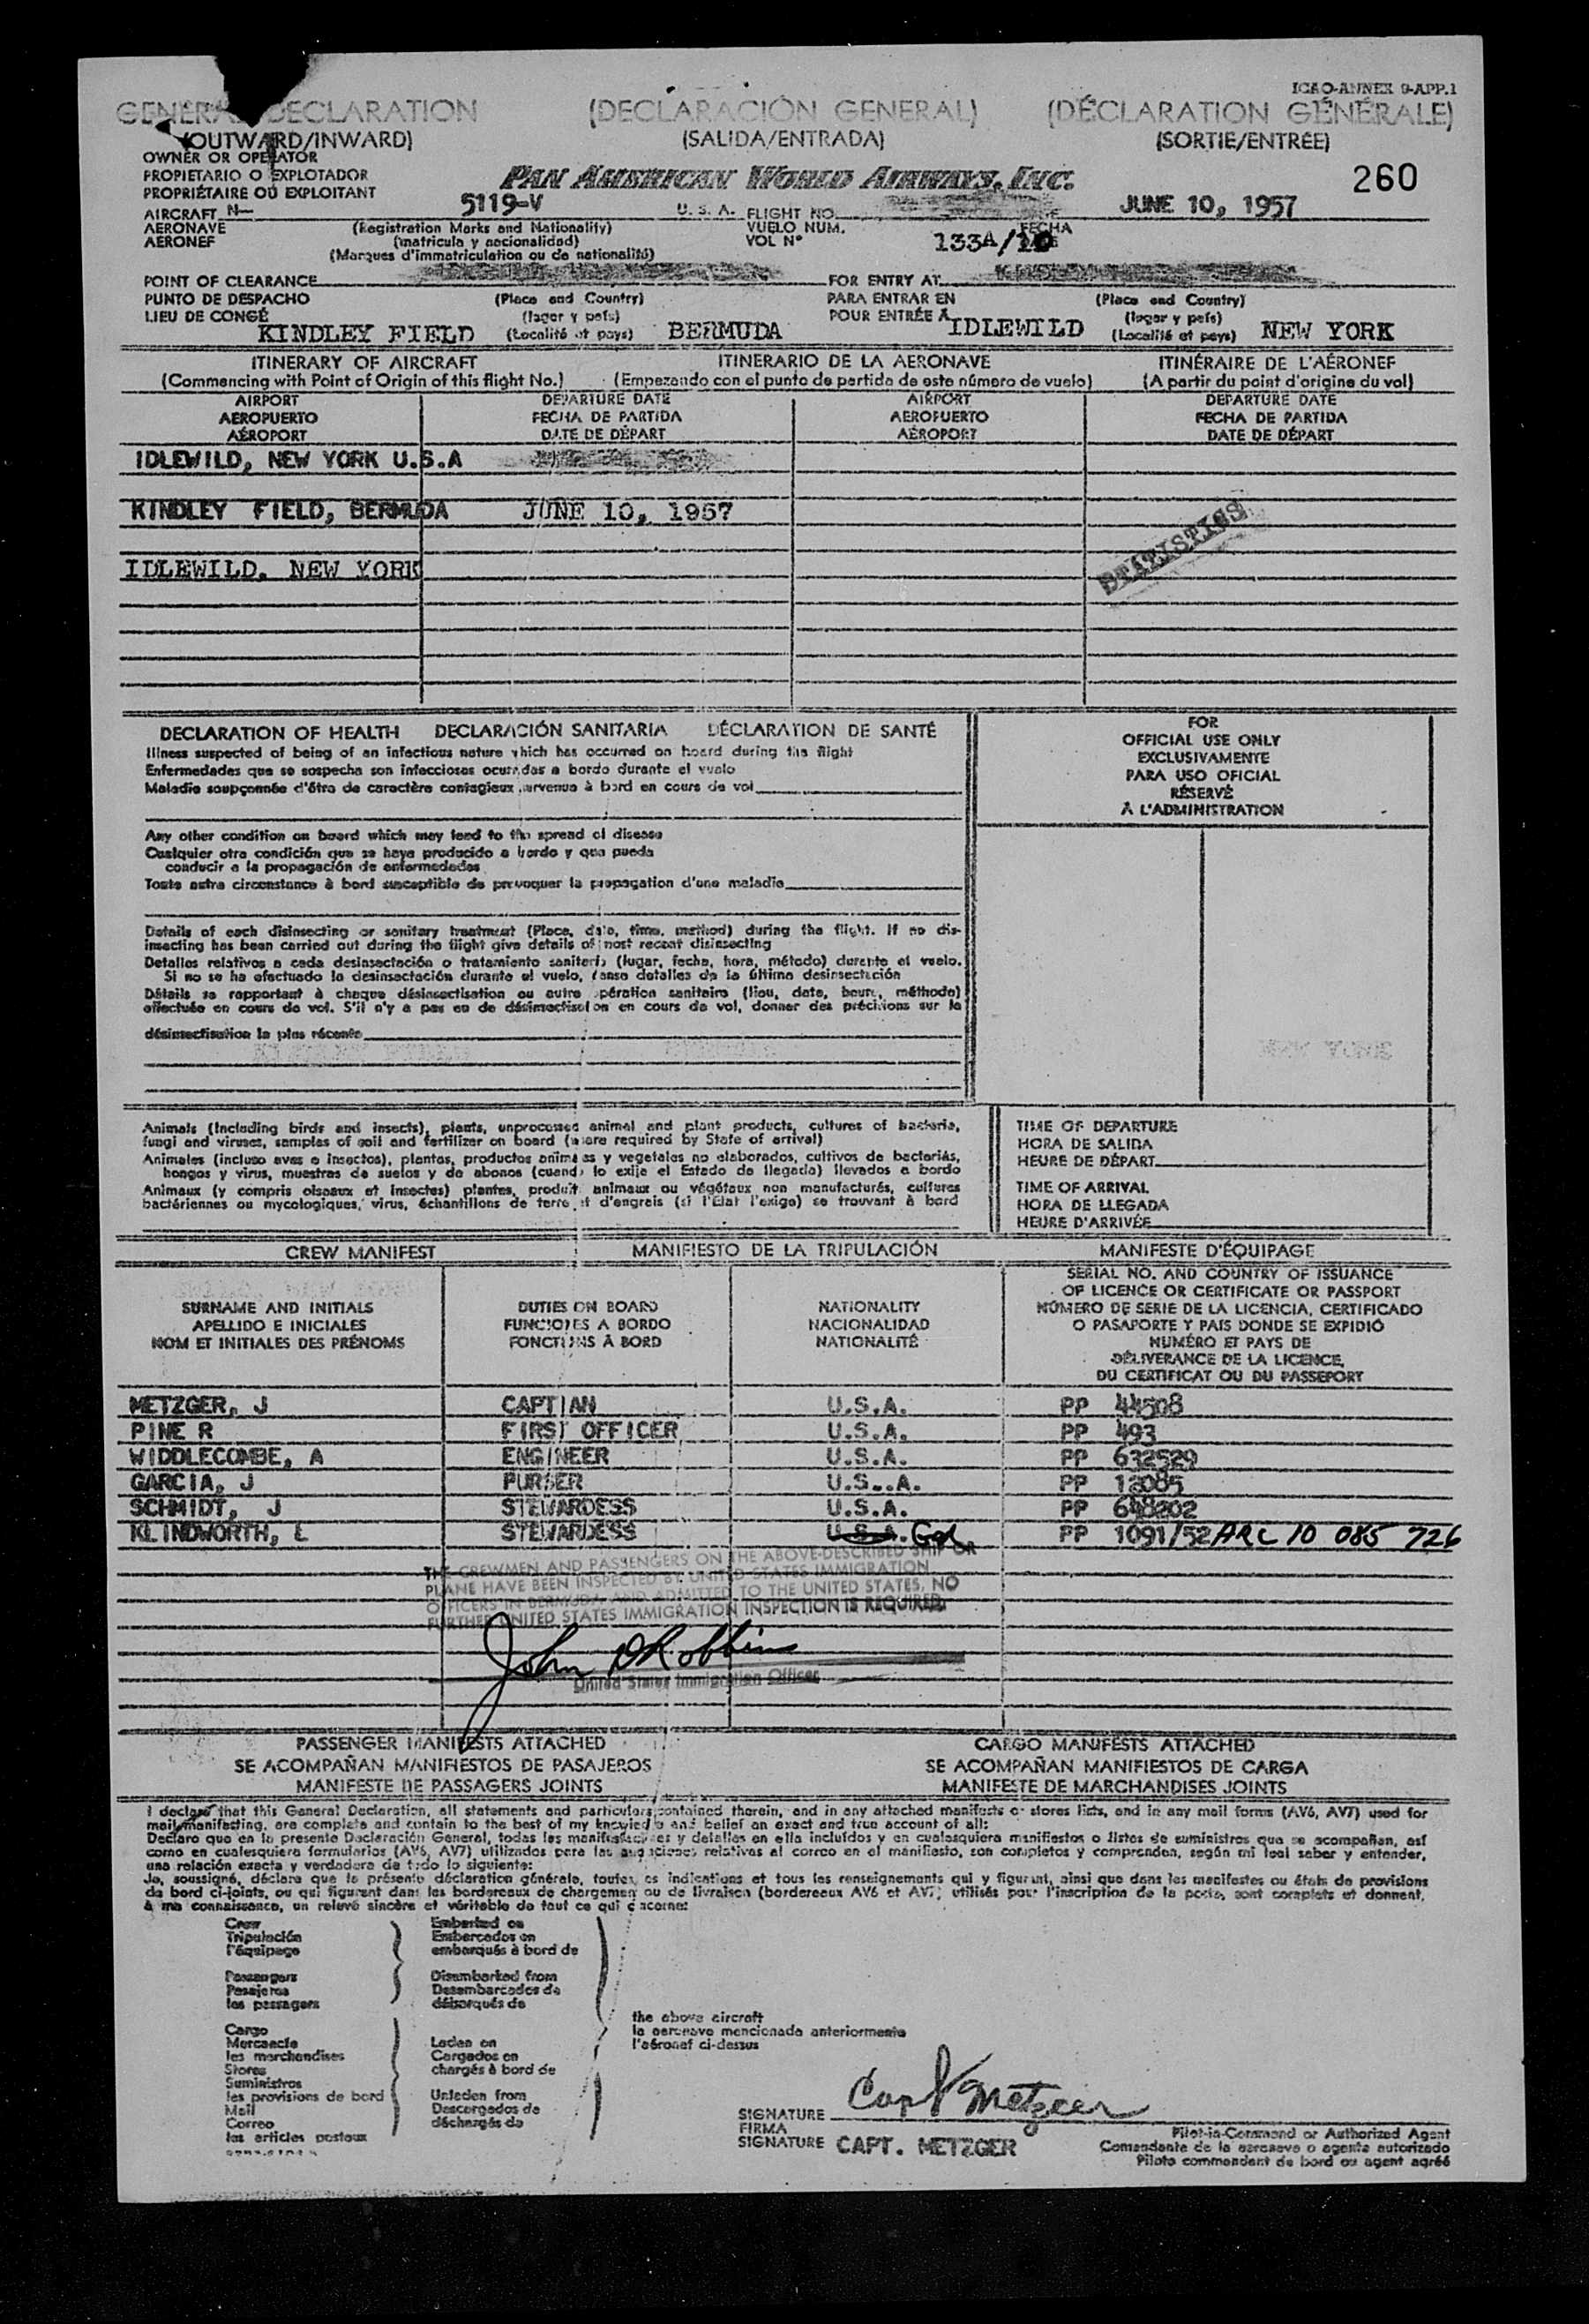 ICAO-ANNEX 9-APP.1
GENERAL DECLARATION (DECLARACIÓN GENERAL) (DÉCLARATION GÉNÉRALE)
(OUTWARD/INWARD) (SALIDA/ENTRADA) (SORTIE/ENTRÉE)
OWNER OR OPERATOR
PROPIETARIO O EXPLOTADOR
PROPRIÉTAIRE OU EXPLOITANT
PAN AMERICAN WORLD AIRWAYS, INC.
260
AIRCRAFT N— 5119-V U. S. A. FLIGHT NO. JUNE 10, 1957
AERONAVE (Registration Marks and Nationality) VUELO NUM. FECHA
AERONEF (matricula y nacionalidad) VOL Nº 133A/10
(Marques d'immatriculation ou de nationalité)
POINT OF CLEARANCE FOR ENTRY AT
PUNTO DE DESPACHO (Place and Country) PARA ENTRAR EN (Place and Country)
LIEU DE CONGÉ (lugar y país) POUR ENTRÉE À (lugar y país)
KINDLEY FIELD (Localité et pays) BERMUDA IDLEWILD (Localité et pays) NEW YORK
ITINERARY OF AIRCRAFT ITINERARIO DE LA AERONAVE ITINÉRAIRE DE L'AÉRONEF
(Commencing with Point of Origin of this flight No.) (Empezando con el punto de partida de este número de vuelo) (A partir du point d'origine du vol)
AIRPORT DEPARTURE DATE AIRPORT DEPARTURE DATE
AEROPUERTO FECHA DE PARTIDA AEROPUERTO FECHA DE PARTIDA
AÉROPORT DATE DE DÉPART AÉROPORT DATE DE DÉPART
IDLEWILD, NEW YORK U.S.A
KINDLEY FIELD, BERMUDA JUNE 10, 1957
STATISTICS
IDLEWILD. NEW YORK
DECLARATION OF HEALTH DECLARACIÓN SANITARIA DÉCLARATION DE SANTÉ
Illness suspected of being of an infectious nature which has occurred on board during the flight
Enfermedades que se sospecha son infecciosas ocurridas a bordo durante el vuelo
Maladie soupçonnée d'être de caractère contagieux survenue à bord en cours de vol
Any other condition on board which may lead to the spread of disease
Cualquier otra condición que se haya producido a bordo y que pueda
conducir a la propagación de enfermedades
Toute autre circonstance à bord susceptible de provoquer la propagation d'une maladie
Details of each disinsecting or sanitary treatment (Place, date, time, method) during the flight. If no dis-
insecting has been carried out during the flight give details of most recent disinsecting
Detalles relativos a cada desinsectación o tratamiento sanitario (lugar, fecha, hora, método) durante el vuelo.
Si no se ha efectuado la desinsectación durante el vuelo, danse detalles de la última desinsectación
Détails se rapportant à chaque désinsectisation ou autre opération sanitaire (lieu, date, heure, méthode)
effectuée en cours de vol. S'il n'y a pas eu de désinsectisation en cours de vol, donner des précisions sur la
désinsectisation la plus récente
FOR
OFFICIAL USE ONLY
EXCLUSIVAMENTE
PARA USO OFICIAL
RÉSERVÉ
À L'ADMINISTRATION
NEW YORK
Animals (Including birds and insects), plants, unprocessed animal and plant products, cultures of bacteria,
fungi and viruses, samples of soil and fertilizer on board (where required by State of arrival)
Animales (incluso aves e insectos), plantas, productos animales y vegetales no elaborados, cultivos de bacterias,
hongos y virus, muestras de suelos y de abonos (cuando lo exije el Estado de llegada) llevados a bordo
Animaux (y compris oiseaux et insectes) plantes, produits animaux ou végétaux non manufacturés, cultures
bactériennes ou mycologiques, virus, échantillons de terre et d'engrais (si l'Etat l'exige) se trouvant à bord
TIME OF DEPARTURE
HORA DE SALIDA
HEURE DE DÉPART
TIME OF ARRIVAL
HORA DE LLEGADA
HEURE D'ARRIVÉE
CREW MANIFEST MANIFIESTO DE LA TRIPULACIÓN MANIFESTE D'ÉQUIPAGE
SURNAME AND INITIALS
APELLIDO E INICIALES
NOM ET INITIALES DES PRÉNOMS
DUTIES ON BOARD
FUNCIONES A BORDO
FONCTIONS À BORD
NATIONALITY
NACIONALIDAD
NATIONALITÉ
SERIAL NO. AND COUNTRY OF ISSUANCE
OF LICENCE OR CERTIFICATE OR PASSPORT
NÚMERO DE SERIE DE LA LICENCIA, CERTIFICADO
O PASAPORTE Y PAIS DONDE SE EXPIDIÓ
NUMÉRO ET PAYS DE
DÉLIVERANCE DE LA LICENCE,
DU CERTIFICAT OU DU PASSEPORT
METZGER, J CAPTIAN U.S.A. PP 44508
PINE R FIRST OFFICER U.S.A. PP 493
WIDDLECOMBE, A ENGINEER U.S.A. PP 632529
GARCIA, J PURSER U.S..A. PP 12085
SCHMIDT, J STEWARDESS U.S.A. PP 648202
KLINDWORTH, E STEWARDESS U.S.A. PP 1091/52 ARC 10 085 726
THE CREWMEN AND PASSENGERS ON THE ABOVE-DESCRIBED SHIP OR
PLANE HAVE BEEN INSPECTED BY UNITED STATES IMMIGRATION
OFFICERS IN BERMUDA AND ADMITTED TO THE UNITED STATES, NO
FURTHER UNITED STATES IMMIGRATION INSPECTION IS REQUIRED.
John D Robbins
United States Immigration Officer
PASSENGER MANIFESTS ATTACHED CARGO MANIFESTS ATTACHED
SE ACOMPAÑAN MANIFIESTOS DE PASAJEROS SE ACOMPAÑAN MANIFIESTOS DE CARGA
MANIFESTE DE PASSAGERS JOINTS MANIFESTE DE MARCHANDISES JOINTS
I declare that this General Declaration, all statements and particulars contained therein, and in any attached manifests or stores lists, and in any mail forms (AV6, AV7) used for
mail manifesting, are complete and contain to the best of my knowledge and belief an exact and true account of all:
Declaro que en la presente Declaración General, todas las manifestaciones y detalles en ella incluídos y en cualesquiera manifiestos o listas de suministros que se acompañan, así
como en cualesquiera formularios (AV6, AV7) utilizados para las anotaciones relativas al correo en el manifiesto, son completos y comprenden, según mi leal saber y entender,
una relación exacta y verdadera de todo lo siguiente:
Je, soussigné, déclare que la présente déclaration générale, toutes les indications et tous les renseignements qui y figurant, ainsi que dans les manifestes ou états de provisions
de bord ci-joints, ou qui figurent dans les bordereaux de chargement ou de livraison (bordereaux AV6 et AV7) utilisés pour l'inscription de la poste, sont complets et donnent,
à ma connaissance, un relevé sincère et véritable de tout ce qui concerne:
Crew Embarked on
Tripulación Embarcados en
l'équipage embarqués à bord de
Passengers Disembarked from
Pasajeros Desembarcados de
les passagers débarqués de
the above aircraft
la aeronave mencionada anteriormente
l'aéronef ci-dessus
Cargo
Mercancía Laden on
les marchandises Cargados en
Stores chargés à bord de
Suministros
les provisions de bord Unladen from
Mail Descargados de
Correo déchargés de
les articles postaux
SIGNATURE Capt J Metzger
FIRMA
SIGNATURE CAPT. METZGER
Pilot-in-Command or Authorized Agent
Comandante de la aeronave o agente autorizado
Pilote commandant de bord ou agent agréé